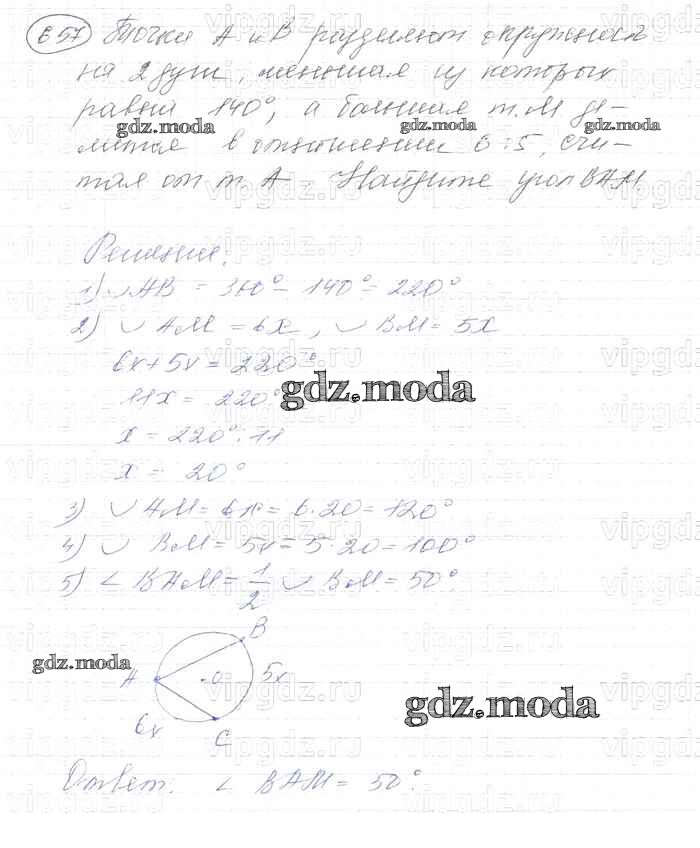 657 Точки А и В разделяют окружность
на 2 дуги, меньшая из которых
равна 140°, а большая т. М де-
лится в отношении 6:5, счи-
тая от т. А Найдите угол ВАМ.
gdz.moda gdz.moda gdz.moda
Решение.
1) ◡ АВ = 360° - 140° = 220°
2) ◡ АМ = 6х, ◡ ВМ = 5х
6х + 5х = 220°
11х = 220°
gdz.moda
х = 220° : 11
х = 20°
3) ◡ АМ = 6х = 6 · 20 = 120°
4) ◡ ВМ = 5х = 5 · 20 = 100°
5) ∠ ВАМ = 1/2 ◡ ВМ = 50°.
В
gdz.moda
А О 5х
gdz.moda
6х С
Ответ: ∠ ВАМ = 50°.
vipgdz.ru